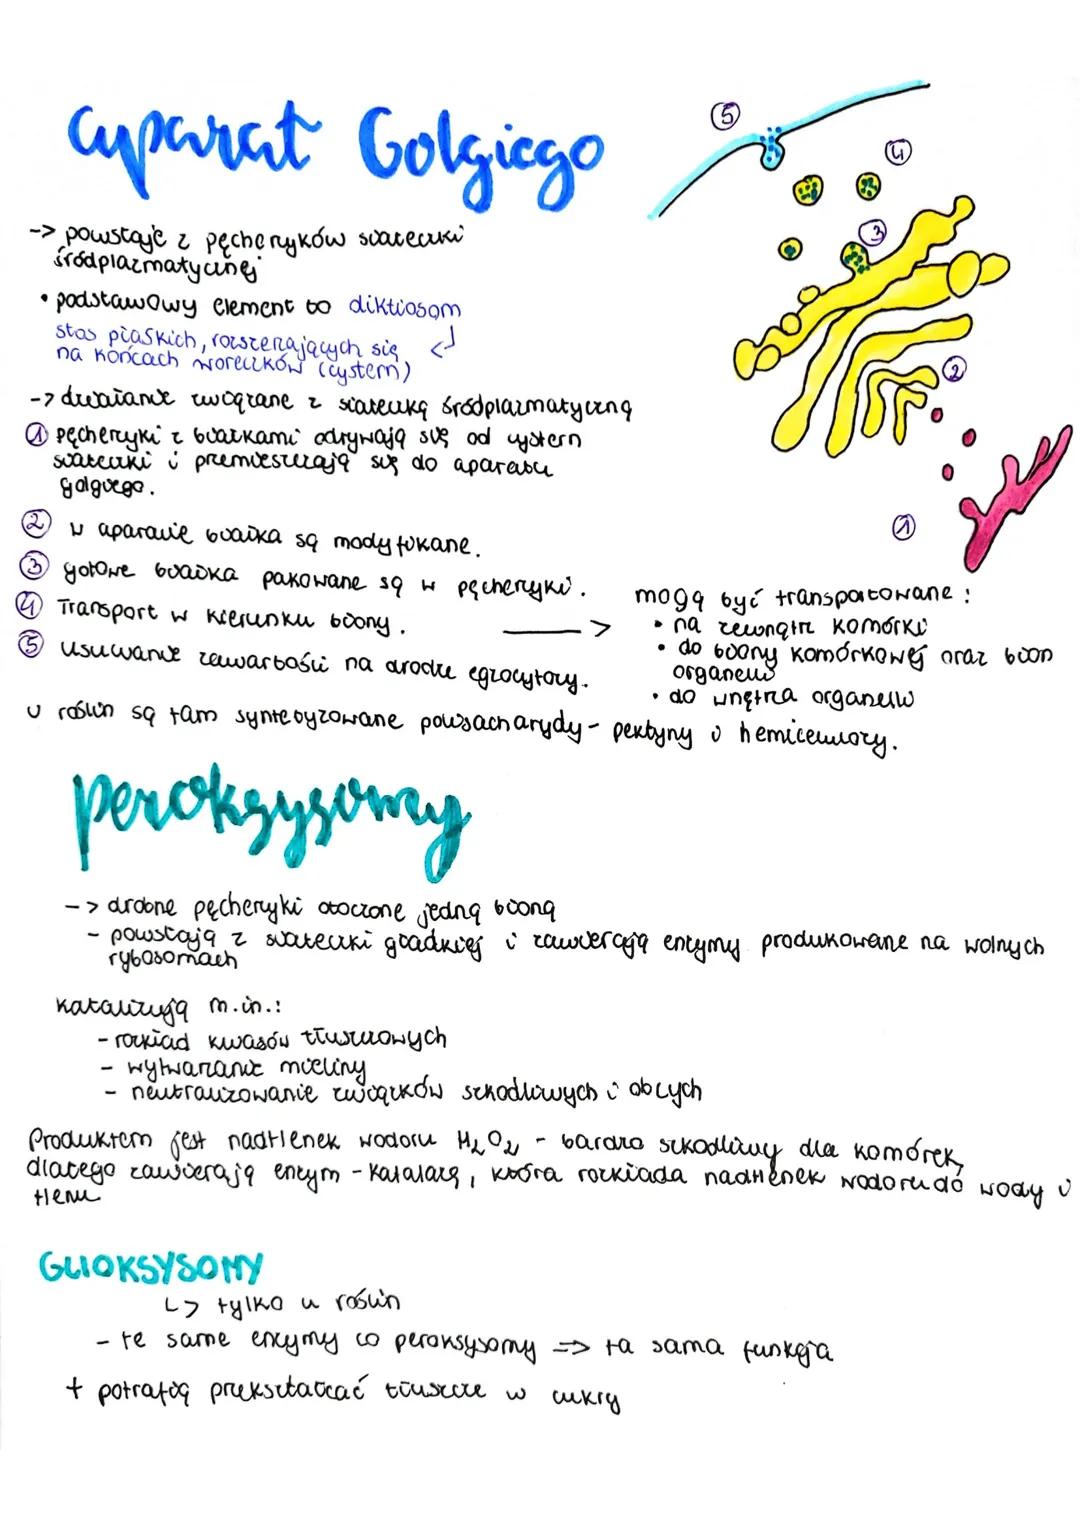 aparat Golgiego
-> powstaje z pęcherzyków siateczki
śródplazmatycznej
• podstawowy element to diktiosom
stos płaskich, rozszerzających się
na końcach woreczków (cystern)
-> działanie związane z siateczką śródplazmatyczną
① pęcherzyki z białkami odrywają się od cystern
siateczki i przemieszczają się do aparatu
golgiego.
② w aparacie białka są modyfikane.
③ gotowe białka pakowane są w pęcherzyki.
④ Transport w kierunku błony.
⑤ usuwanie zawartości na drodze egzocytozy.
->
mogą być transportowane:
• na zewnątrz komórki
• do błony komórkowej oraz błon
organelli
• do wnętrza organelli
u roślin są tam syntetyzowane polisacharydy - pektyny i hemicelulozy.
⑤
④
③
②
①
peroksysomy
-> drobne pęcherzyki otoczone jedną błoną
- powstają z siateczki gładkiej i zawierają enzymy produkowane na wolnych
rybosomach
katalizują m.in.:
- rozkład kwasów tłuszczowych
- wytwarzanie mieliny
- neutralizowanie związków szkodliwych i obcych
Produktem jest nadtlenek wodoru H₂O₂ - bardzo szkodliwy dla komórek,
dlatego zawierają enzym - katalazę, która rozkłada nadtlenek wodoru do wody i
tlenu
GLIOKSYSOMY
↳ tylko u roślin
- te same enzymy co peroksysomy => ta sama funkcja
+ potrafią przekształcać tłuszcze w cukry